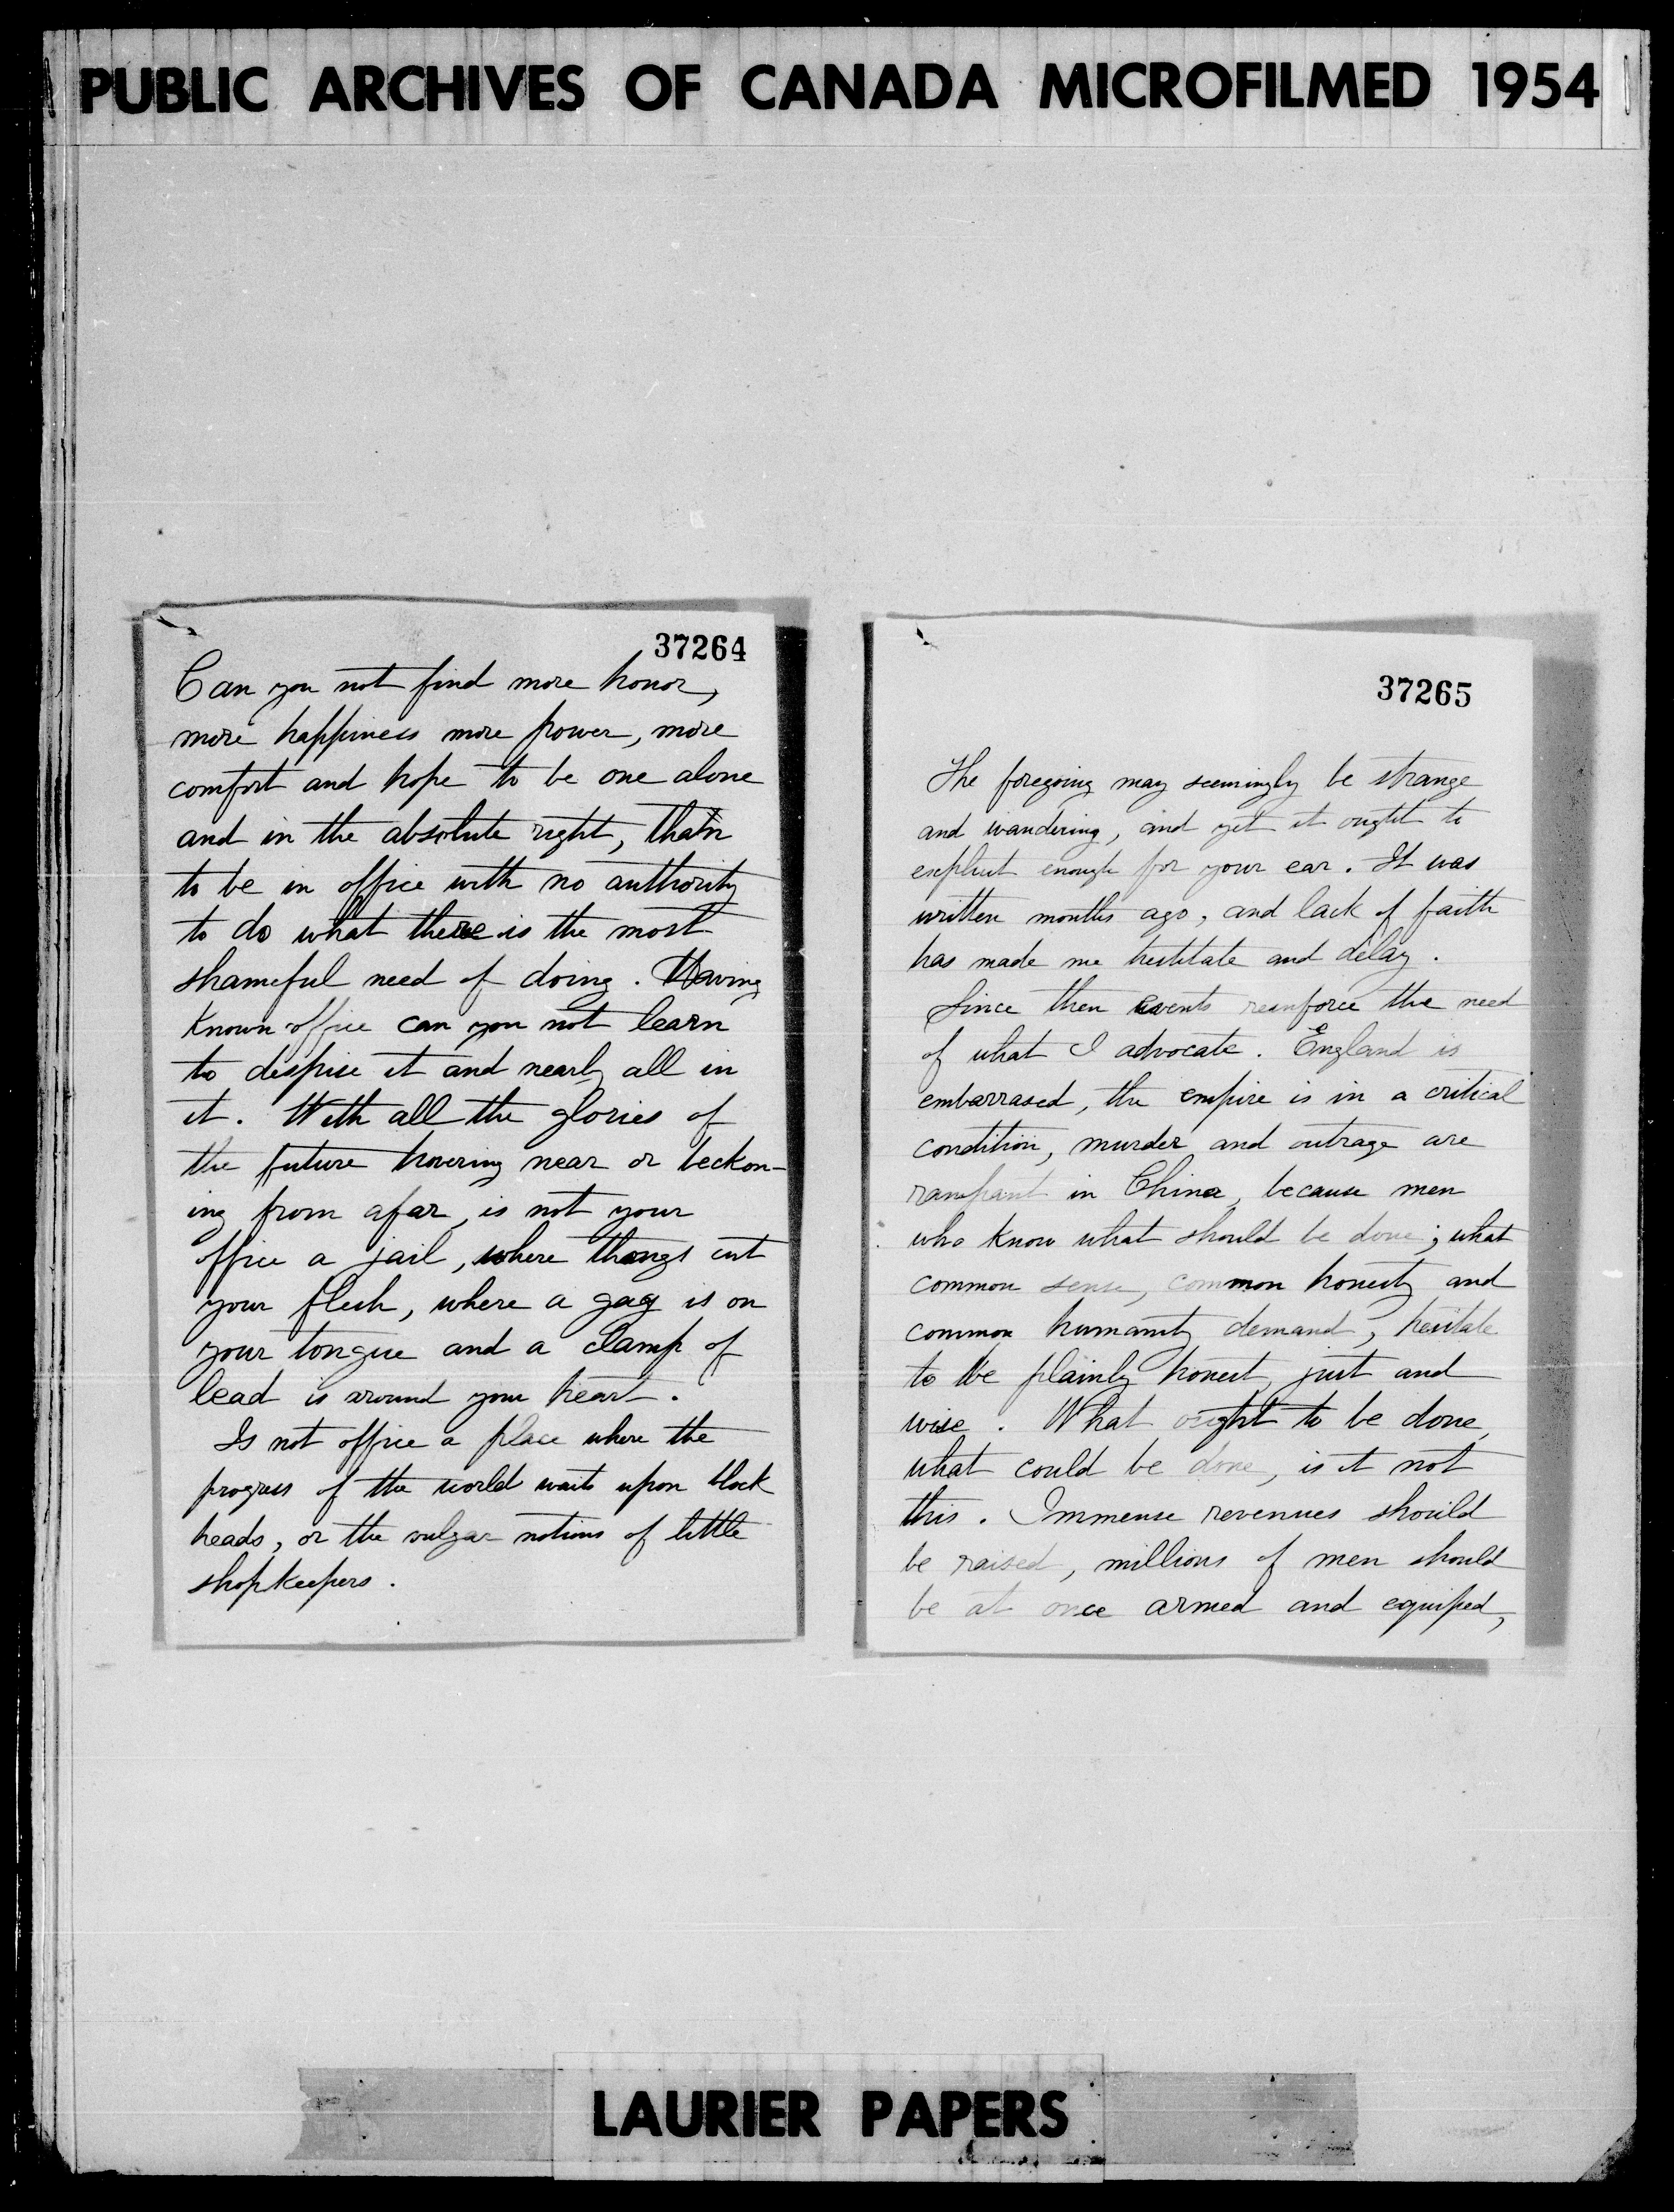 PUBLIC ARCHIVES OF CANADA MICROFILMED 1954
37264
Can you not find more honor,
more happiness more power, more
comfort and hope to be one alone
and in the absolute right, than
to be in office with no authority
to do what there is the most
shameful need of doing. Having
known office can you not learn
to despise it and nearly all in
it. With all the glories of
the future hovering near or beckon-
ing from afar, is not your
office a jail, where thongs cut
your flesh, where a gag is on
your tongue and a clamp of
lead is around your heart.
Is not office a place where the
progress of the world waits upon block
heads, or the vulgar notions of little
shopkeepers.
37265
The foregoing may seemingly be strange
and wandering, and yet it ought to
explicit enough for your ear. It was
written months ago, and lack of faith
has made me hestitate and delay.
Since then events reinforce the need
of what I advocate. England is
embarrased, the empire is in a critical
condition, murder and outrage are
rampant in China, because men
who know what should be done; what
common sense, common honesty and
common humanity demand, hesitate
to be plainly honest, just and
wise. What ought to be done,
what could be done, is it not
this. Immense revenues should
be raised, millions of men should
be at once armed and equiped,
LAURIER PAPERS